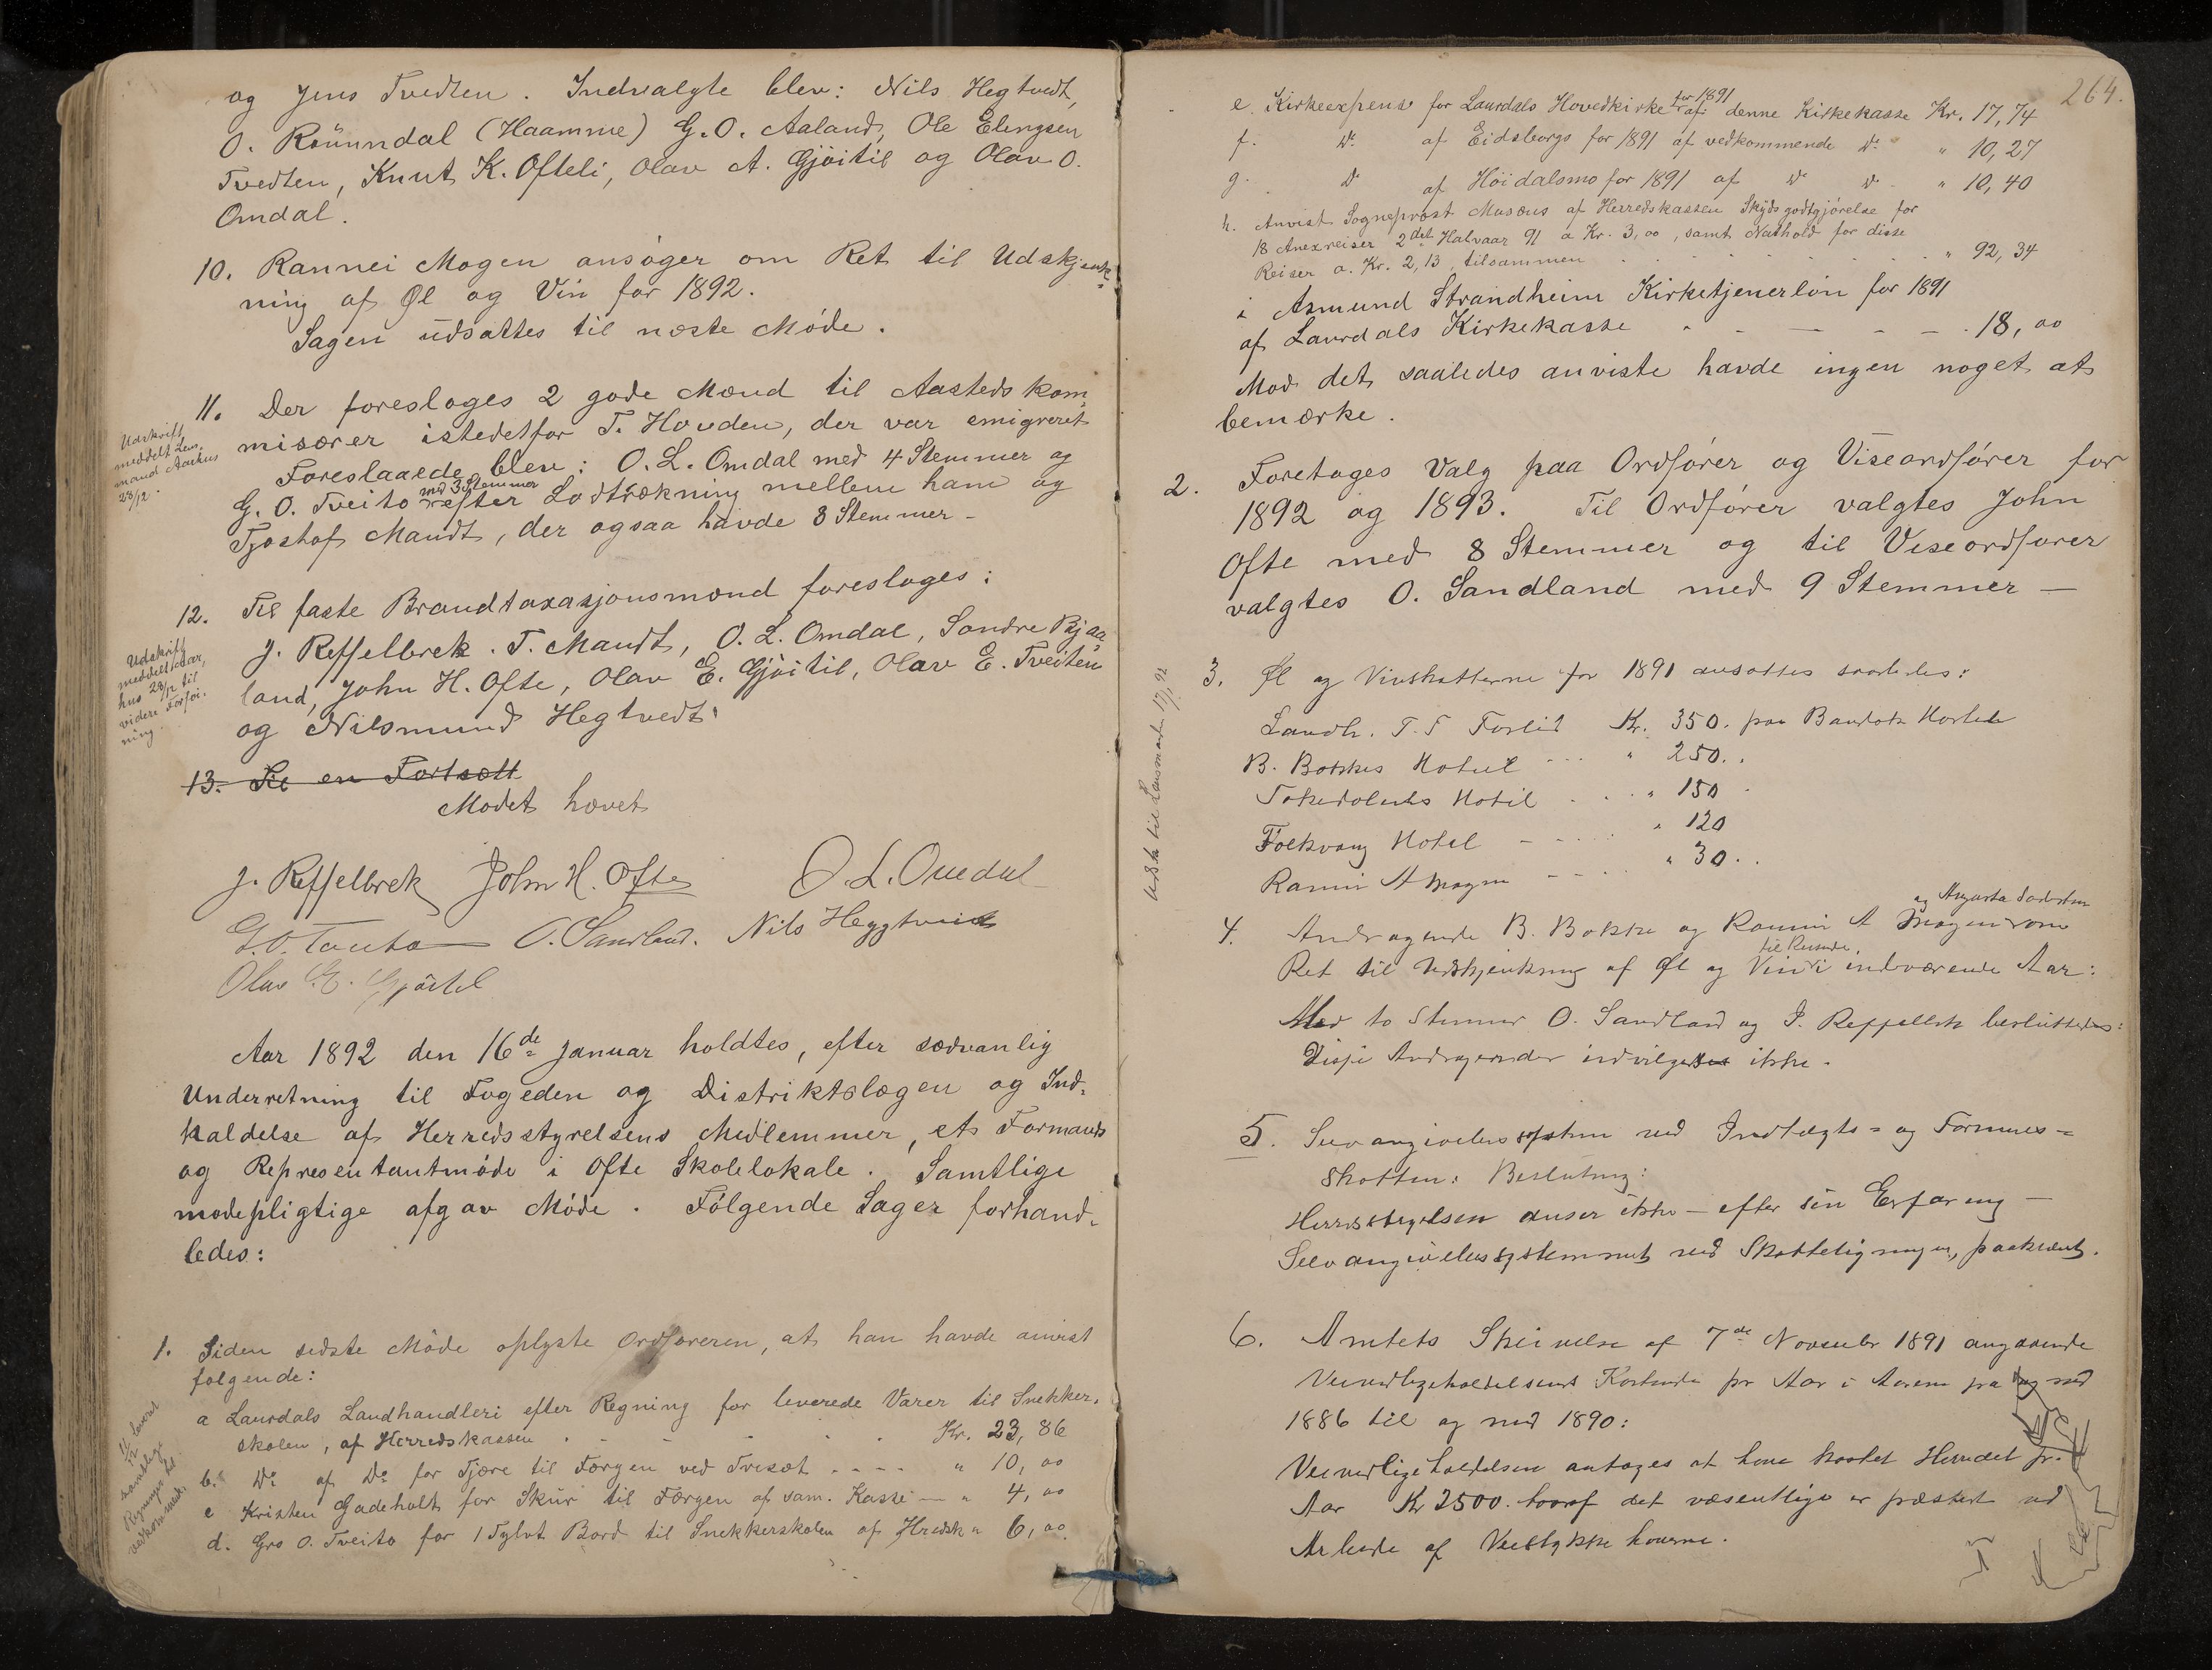 og Jens Tvedten. Indvalgte blev: Nils Hegtvedt,
O. Röunndal (Haamme) G. O. Aaland, Ole Elengsen
Tvedten, Knut K. Ofteli, Olav A. Gjöitil og Olav O.
Omdal.
10. Rannei Mogen ansøger om Ret til Udskjenk-
ning af Øl og Vin for 1892.
Sagen udsattes til næste Møde.
11. Der foresloges 2 gode Mænd til Aastedskom-
misærer istedetfor T. Hovden, der var emigreret
Foreslaaede blev: O. L. Omdal med 4 Stemmer og
G. O. Tveito med 3 Stemmer efter Lodtrækning mellem ham og
Tjostof Mandt, der ogsaa havde 3 Stemmer -
Udskrift
meddelt Len,
mand Aarhus
23/12.
12. Til faste Brandtaxasjonsmænd foresloges:
J. Reffelbrek. T. Mandt, O. L. Omdal, Sondre Bjaa
land, John H. Ofte, Olav E. Gjöitil, Olav E. Tveiten
og Nilsmund Hegtvedt.
Udskrift
meddelt Aar,
hus 23/12 til
videre Forföi-
ning.
13. Til en Fortsatt
Mødet hævet
J. Reffelbrek John H. Ofte O. L. Omdal
G. O. Tveito O. Sandland. Nils Heggtveit
Olav E. Gjöitil
Aar 1892 den 16de Januar holdtes, efter sædvanlig
Underretning til Fogeden og Distriktslægen og Ind-
kaldelse af Herredsstyrelsens Medlemmer, et Formands
og Representantmöde i Ofte Skolelokale. Samtlige
mødepligtige afgav Møde. Følgende Sager forhand-
ledes:
1. Siden sidste Møde oplyste Ordføreren, at han havde anvist
følgende:
a Laurdals Landhandleri efter Regning for leverede Varer til Snekker-
skolen, af Herredskassen Kr. 23,86
b. Do af Do for Tjære til Færgen ved Tveisæt " 10,00
c Kristen Gjadeholt for Skur til Færgen af sam. Kasse " 4,00
d. Gro O. Tveito for 1 Tylvt Bord til Snekkerskolen af Hredsk " 6,00
samtlige
Regninger til
vedkommende.
264.
e. Kirkeexpens for Laurdals Hovedkirke for 1891 af denne Kirkekasse Kr. 17,74
f. Do af Eidsborgs for 1891 af vedkommende Do " 10,27
g. Do af Höidalsmo for 1891 af Do Do " 10,40
h. Anvist Sogneprost Musæus af Herredskassen Skydsgodtgjörelse for
18 Anexreiser 2det Halvaar 91 a Kr. 3,00, samt Nathold for disse
Reiser a. Kr. 2,13, tilsammen " 92,34
i Asmund Strandheim Kirketjenerlön for 1891
af Laurdals Kirkekasse 18,00
Mod det saaledes anviste havde ingen noget at
bemærke.
2. Foretoges Valg paa Ordfører og Viseordfører for
1892 og 1893. Til Ordfører valgtes John
Ofte med 8 Stemmer og til Viseordfører
valgtes O. Sandland med 9 Stemmer —
3. Øl og Vinskatterne for 1891 ansattes saaledes:
Landh. T. T. Forlid Kr. 350. paa Bandak Hotel
B. Bakkes Hotel " 250.
Tokedølens Hotel " 150
Folkvang Hotel " 120
Rannei A Mogen " 30.
Udskr til Lensmanden 17/1 92
4. Andragende B. Bakke og Rannei A Mogen og Augusta om
Ret til Udskjenkning af Øl og Vin til Reisende i indværende Aar:
Mod to Stemmer O. Sandland og J. Reffelbrek besluttedes:
Disse Andragender indvilges ikke.
5. Selvangivelsessystem ved Indtægts- og Formues-
skatten: Beslutning:
Herredsstyrelsen anser ikke — efter sin Erfaring —
Selvangivelsessystemet ved Skatteligningen, paakrævet.
6. Amtets Skrivelse af 7de November 1891 angaaende
Veivedligeholdelsens Kostende pr Aar i Aarene fra og med
1886 til og med 1890:
Veivedligeholdelsen antages at have kostet Herredet pr.
Aar Kr 2500. hvoraf det væsentlige er præstert ved
Arbeide af Veistykke havere.